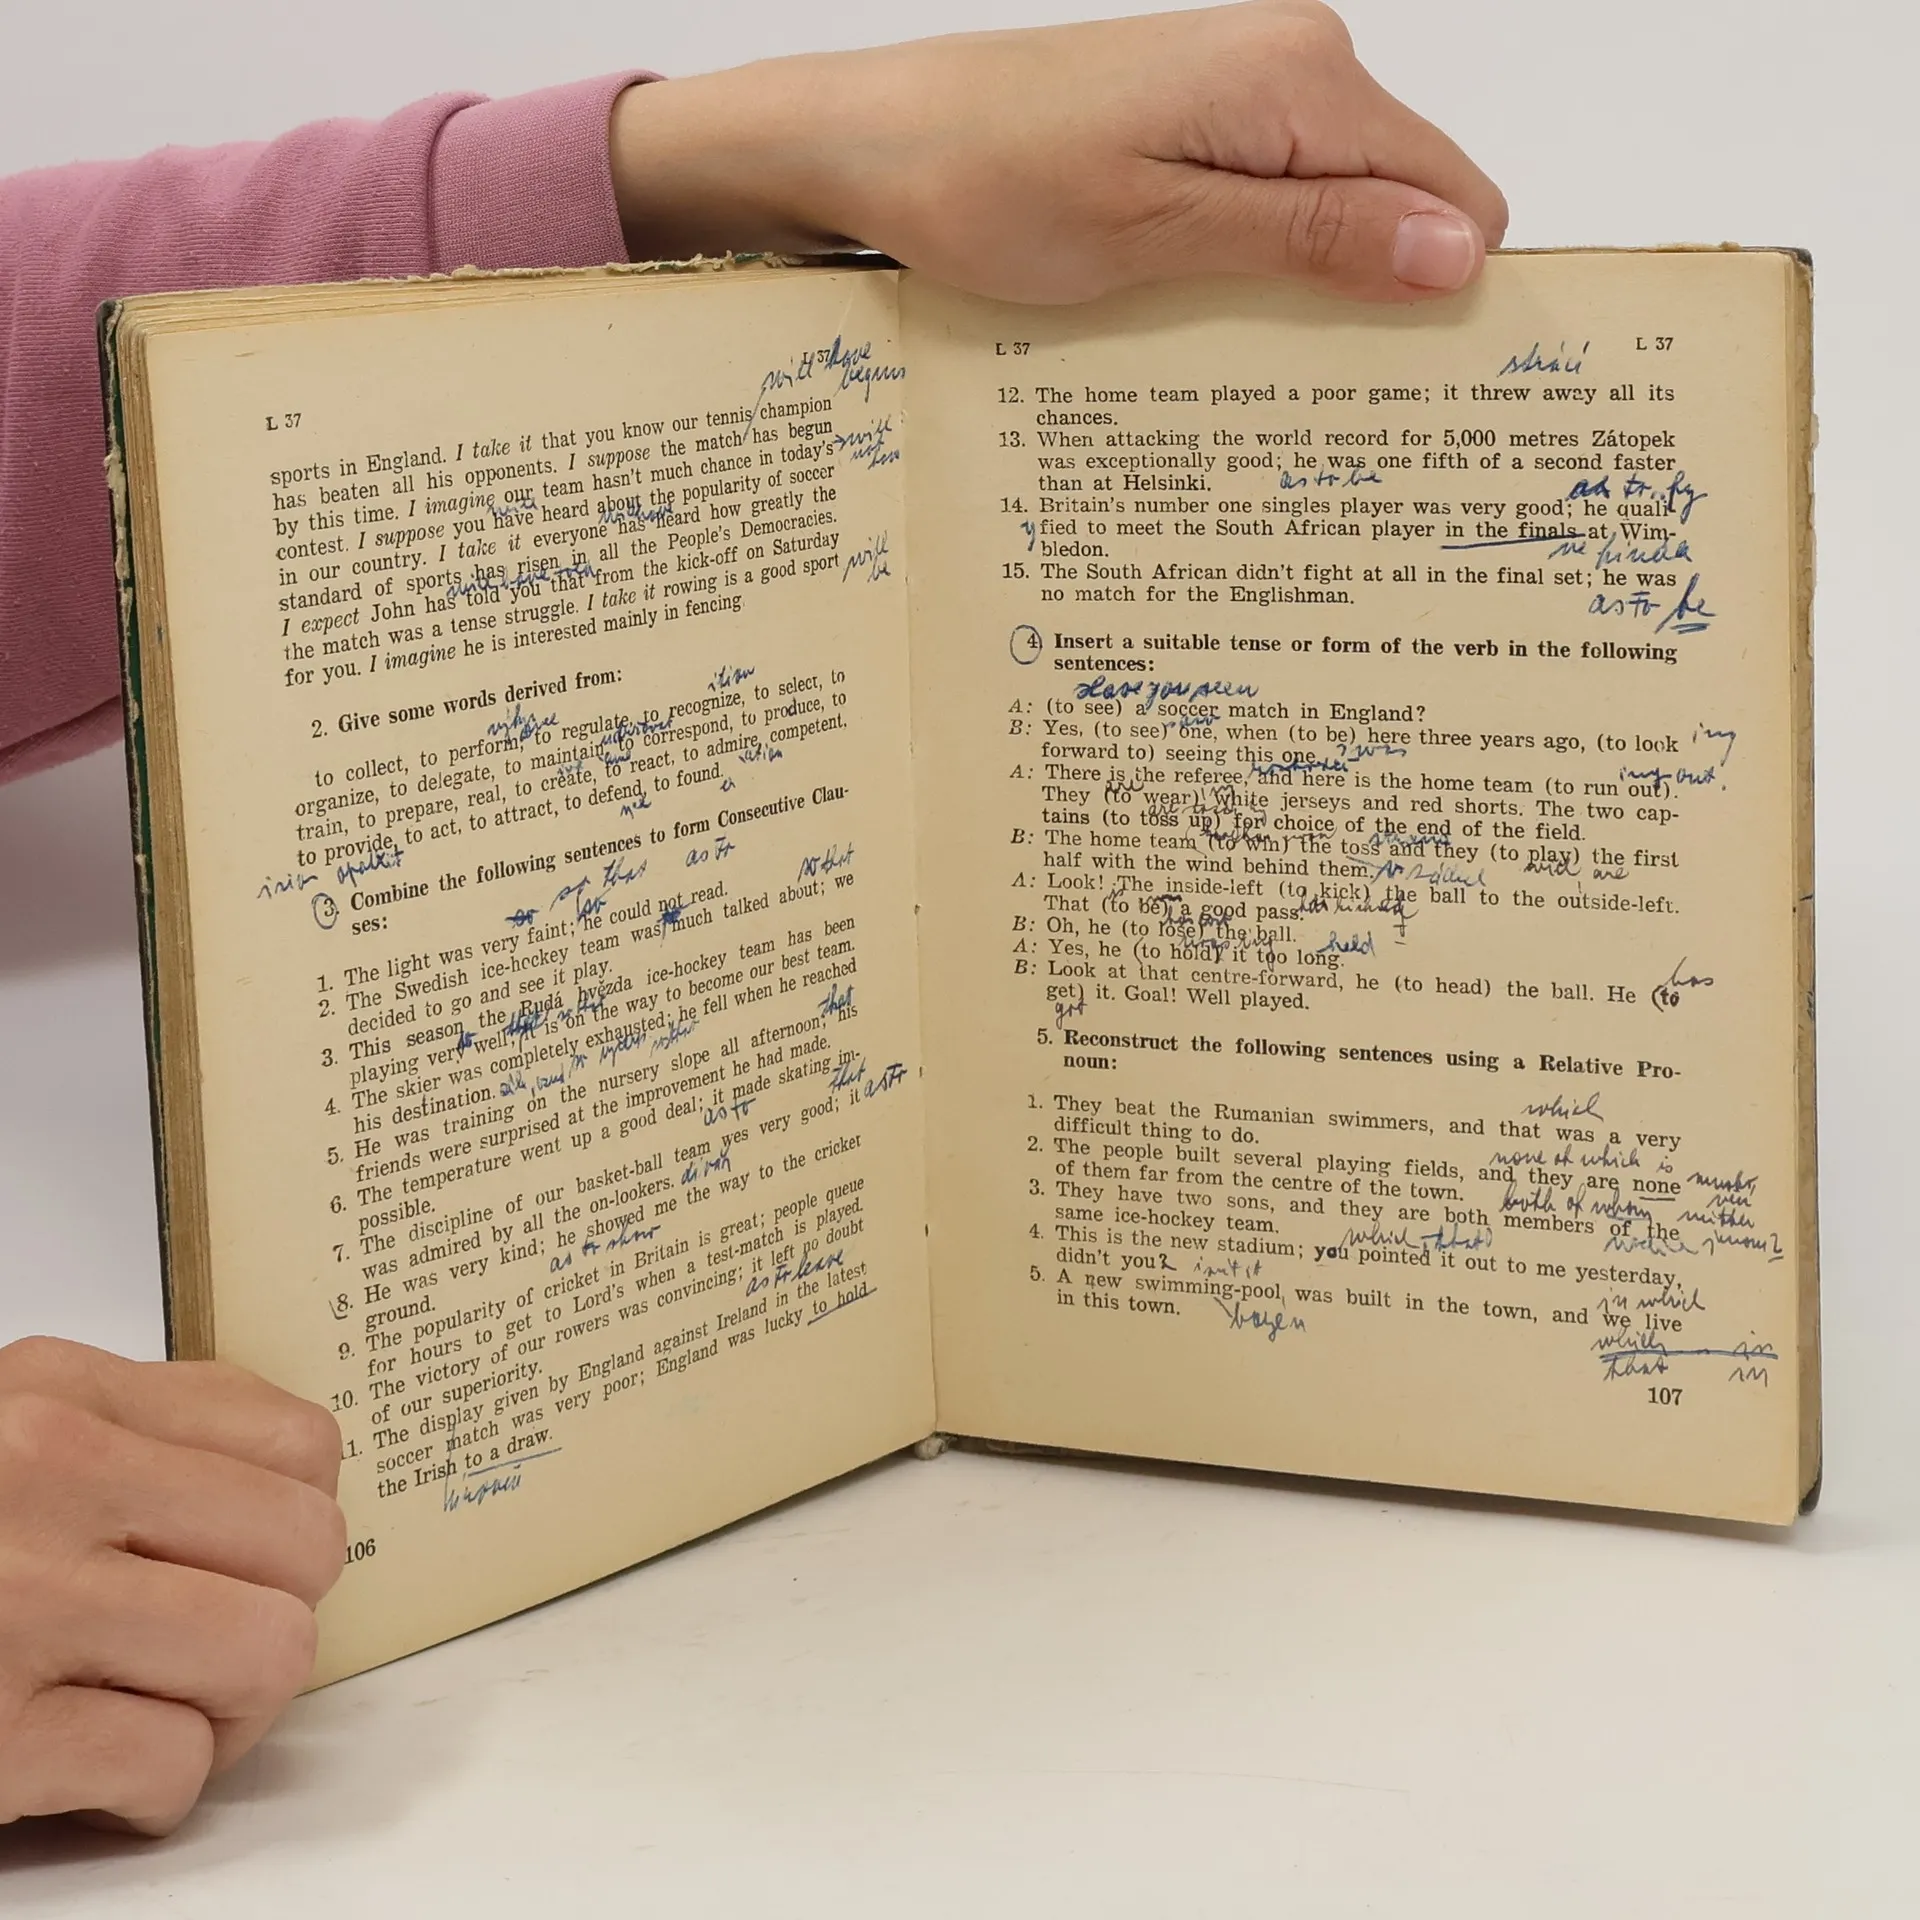 L 37
L 37
will have
begun
sports in England. I take it that you know our tennis champion
has beaten all his opponents. I suppose the match has begun
by this time. I imagine our team hasn't much chance in today's
contest. I suppose you have heard about the popularity of soccer
in our country. I take it everyone has heard how greatly the
standard of sports has risen in all the People's Democracies.
I expect John has told you that from the kick-off on Saturday
the match was a tense struggle. I take it rowing is a good sport
for you. I imagine he is interested mainly in fencing.
will
be
will have told
2. Give some words derived from:
ition
to collect, to perform, to regulate, to recognize, to select, to
organize, to delegate, to maintain, to correspond, to produce, to
train, to prepare, real, to create, to react, to admire, competent,
to provide, to act, to attract, to defend, to found.
3. Combine the following sentences to form Consecutive Clau-
ses:
so that
as to
so that
so
1. The light was very faint; he could not read.
2. The Swedish ice-hockey team was much talked about; we
decided to go and see it play.
3. This season the Rudá hvězda ice-hockey team has been
playing very well; it is on the way to become our best team.
4. The skier was completely exhausted; he fell when he reached
his destination.
that
5. He was training on the nursery slope all afternoon; his
friends were surprised at the improvement he had made.
6. The temperature went up a good deal; it made skating im-
possible.
as to
that
as to
7. The discipline of our basket-ball team yes very good; it
was admired by all the on-lookers.
8. He was very kind; he showed me the way to the cricket
ground.
as to show
9. The popularity of cricket in Britain is great; people queue
for hours to get to Lord's when a test-match is played.
10. The victory of our rowers was convincing; it left no doubt
of our superiority.
as to leave
11. The display given by England against Ireland in the latest
soccer match was very poor; England was lucky to hold
the Irish to a draw.
106
L 37
L 37
12. The home team played a poor game; it threw away all its
chances.
13. When attacking the world record for 5,000 metres Zátopek
was exceptionally good; he was one fifth of a second faster
than at Helsinki.
as to be
14. Britain's number one singles player was very good; he quali-
fied to meet the South African player in the finals at Wim-
bledon.
ve finále
15. The South African didn't fight at all in the final set; he was
no match for the Englishman.
as to be
4. Insert a suitable tense or form of the verb in the following
sentences:
Have you seen
A: (to see) a soccer match in England?
B: Yes, (to see) one, when (to be) here three years ago, (to look
forward to) seeing this one.
saw
I was
ing
A: There is the referee, and here is the home team (to run out).
They (to wear) white jerseys and red shorts. The two cap-
tains (to toss up) for choice of the end of the field.
ing out.
B: The home team (to win) the toss and they (to play) the first
half with the wind behind them.
A: Look! The inside-left (to kick) the ball to the outside-left.
That (to be) a good pass.
B: Oh, he (to lose) the ball.
A: Yes, he (to hold) it too long.
held
B: Look at that centre-forward, he (to head) the ball. He (to
get) it. Goal! Well played.
has
got
5. Reconstruct the following sentences using a Relative Pro-
noun:
which
1. They beat the Rumanian swimmers, and that was a very
difficult thing to do.
none of which is
2. The people built several playing fields, and they are none
of them far from the centre of the town.
both of whom
neither
3. They have two sons, and they are both members of the
same ice-hockey team.
which that
4. This is the new stadium; you pointed it out to me yesterday,
didn't you?
in which
5. A new swimming-pool was built in the town, and we live
in this town.
bazen
which in
that in
107